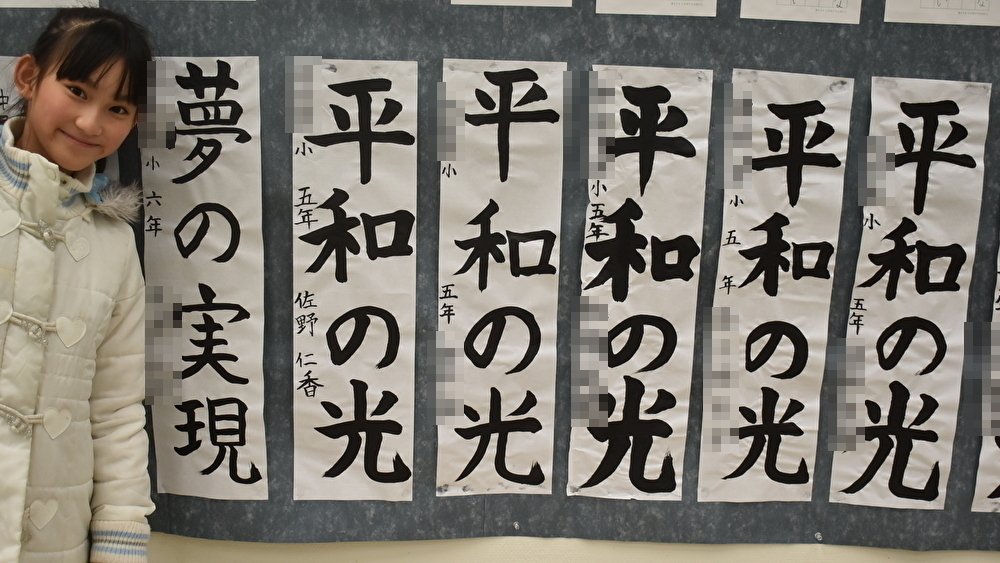 平和の光
小 五年
平和の光
小 五 年
平和の光
小 五年
平和の光
小 五年
平和の光
小 五年 佐野 仁香
夢の実現
小 六年